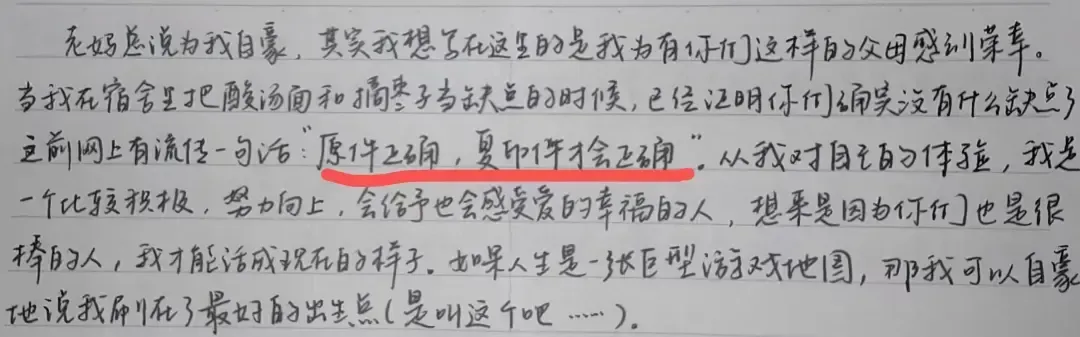 老妈总说为我自豪，其实我想写在这里的是我为有你们这样的父母感到荣幸。
当我在宿舍里把酸汤面和摘枣子当缺点的时候，已经证明你们确实没有什么缺点了
之前网上有流传一句话：“原件正确，复印件才会正确”。从我对自己的体验，我是
一个比较积极，努力向上，会给予也会感受爱的幸福的人，想来是因为你们也是很
棒的人，我才能活成现在的样子。如果人生是一张巨型游戏地图，那我可以自豪
地说我刷在了最好的出生点（是叫这个吧……）。